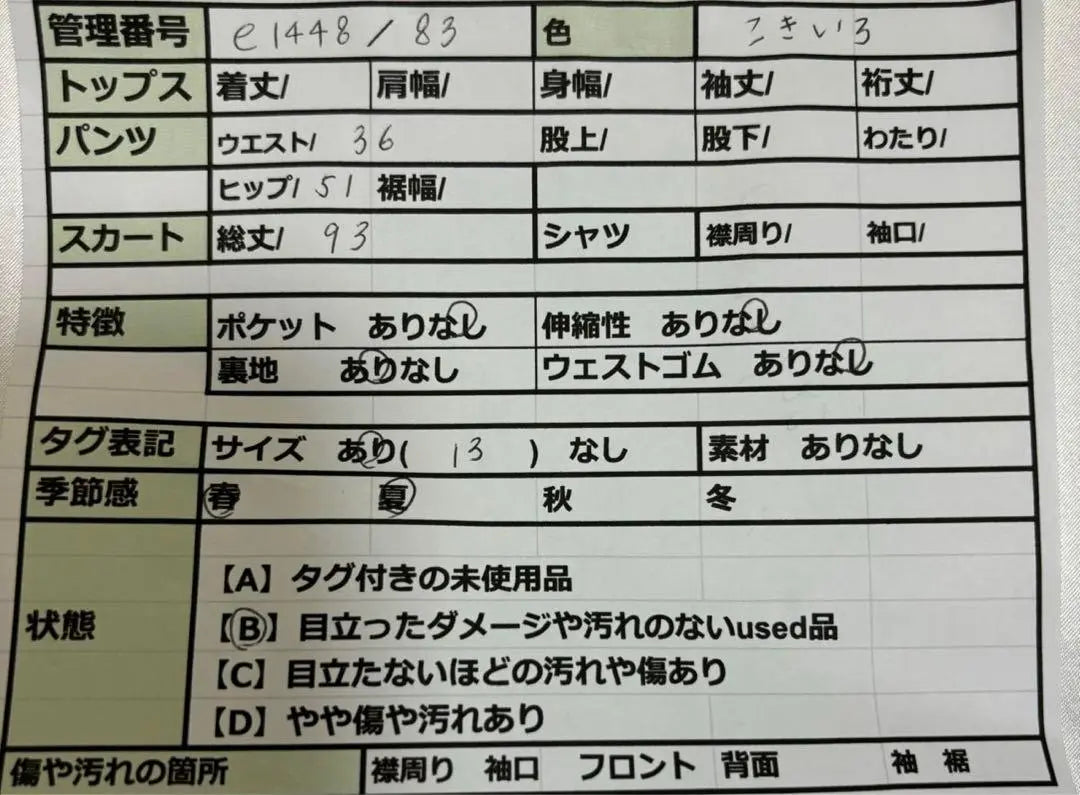 管理番号 e1448/83 色 こきいろ
トップス 着丈/ 肩幅/ 身幅/ 袖丈/ 裄丈/
パンツ ウエスト/ 36 股上/ 股下/ わたり/
ヒップ/ 51 裾幅/
スカート 総丈/ 93 シャツ 襟周り/ 袖口/
特徴 ポケット ありなし 伸縮性 ありなし
裏地 ありなし ウェストゴム ありなし
タグ表記 サイズ あり( 13 ) なし 素材 ありなし
季節感 春 夏 秋 冬
【A】タグ付きの未使用品
状態 【B】目立ったダメージや汚れのないused品
【C】目立たないほどの汚れや傷あり
【D】やや傷や汚れあり
傷や汚れの箇所 襟周り 袖口 フロント 背面 袖 裾